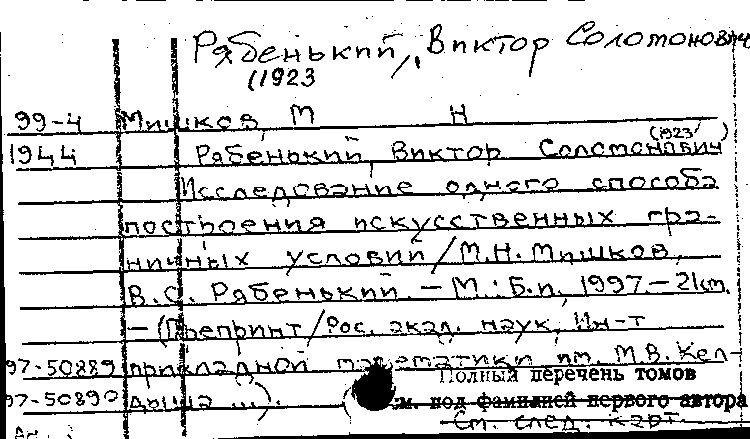 Рябенький, Виктор Соломонович
(1923
99-4 Мишков, М Н
1944 Рябенький, Виктор Соломонович (1923/ )
Исследование одного способа
построения искусственных гра-
ничных условий / М.Н. Мишков,
В.С. Рябенький. — М.: Б.и., 1997. — 21 см.
— (Препринт / Рос. акад. наук, Ин-т
97-50889 прикладной математики им. М.В. Кел-
Полный перечень томов
97-50890 дыша ...).
см. под фамилией первого автора
См. след. карт.